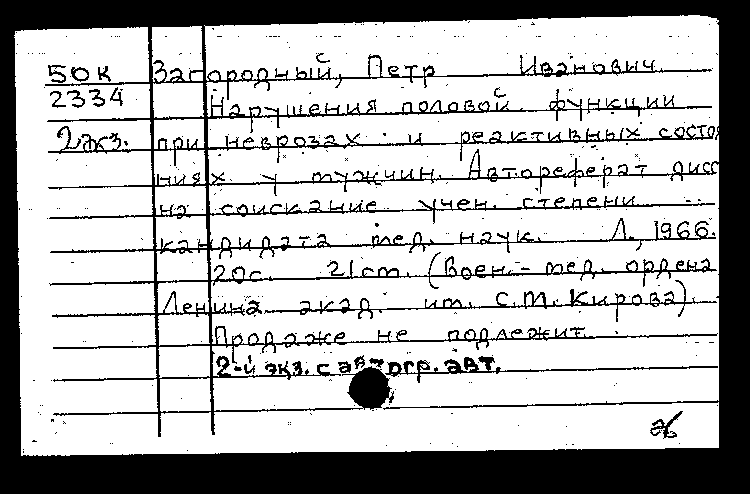 50К Загородный, Петр Иванович.
2334 Нарушения половой функции
2экз. при неврозах и реактивных состоя
ниях у мужчин. Автореферат дисс
на соискание учен. степени
кандидата мед. наук. Л., 1966.
20с. 21см. (Воен.-мед. ордена
Ленина акад. им. С.М.Кирова).
Продаже не подлежит.
2-й экз. с автогр. авт.